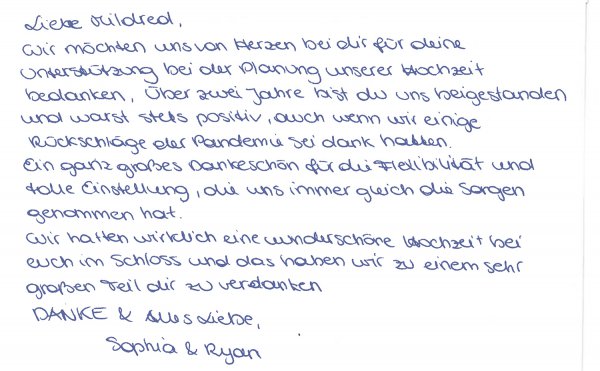 Liebe Mildred,
Wir möchten uns von Herzen bei dir für deine
Unterstützung bei der Planung unserer Hochzeit
bedanken, Über zwei Jahre bist du uns beigestanden
und warst stets positiv, auch wenn wir einige
Rückschläge der Pandemie sei dank hatten.
Ein ganz großes Dankeschön für die Flexibilität und
tolle Einstellung, die uns immer gleich die Sorgen
genommen hat.
Wir hatten wirklich eine wunderschöne Hochzeit bei
euch im Schloss und das haben wir zu einem sehr
großen Teil dir zu verdanken
DANKE & Alles Liebe,
Sophia & Ryan